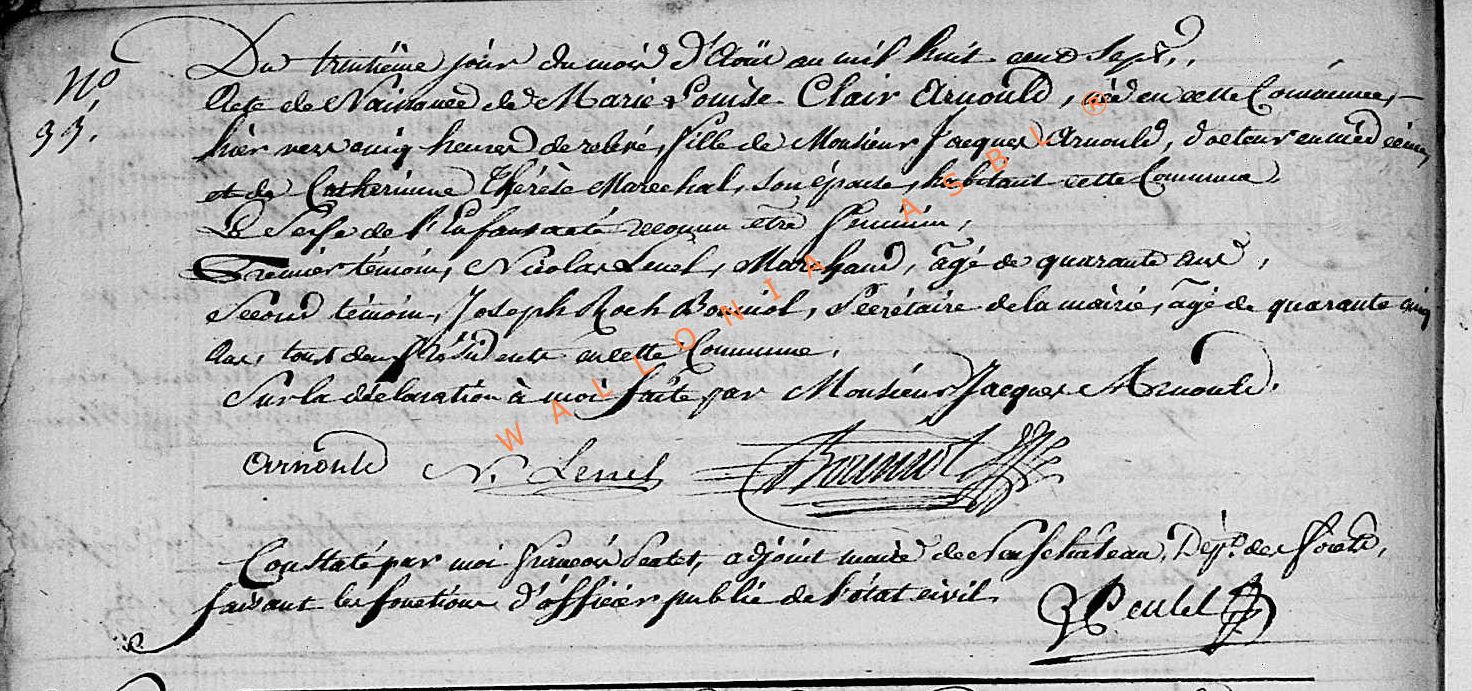 Du trentième jour du mois d'Aoüt an mil huit cent Sept.
No
Acte de Naissance de Marie Louise Clair Arnould, née en cette Commune,
hier vers cinq heures de relevé, fille de Monsieur Jacques Arnould, docteur en médécine,
et de Catherinne Thérèse Marechal, son épouse, habitant cette Commune.
Le Sexe de l'Enfant a été reconnu être féminin,
Premier témoin, Nicolas Lenel, Marchand, âgé de quarante ans,
Second témoin, Joseph Roch Bonniol, Secrétaire de la mairie, âgé de quarante cinq
ans, tous deux résidents en cette Commune,
Sur la déclaration à moi faite par Monsieur Jacques Arnould.
Arnould N. Lenel Bonniol
Constaté par moi François Peulet, adjoint maire de Neufchâteau, Dépt. des forêts,
faisant les fonctions d'officier public de l'état civil.
Peulet
WALLONIA ASBL ®